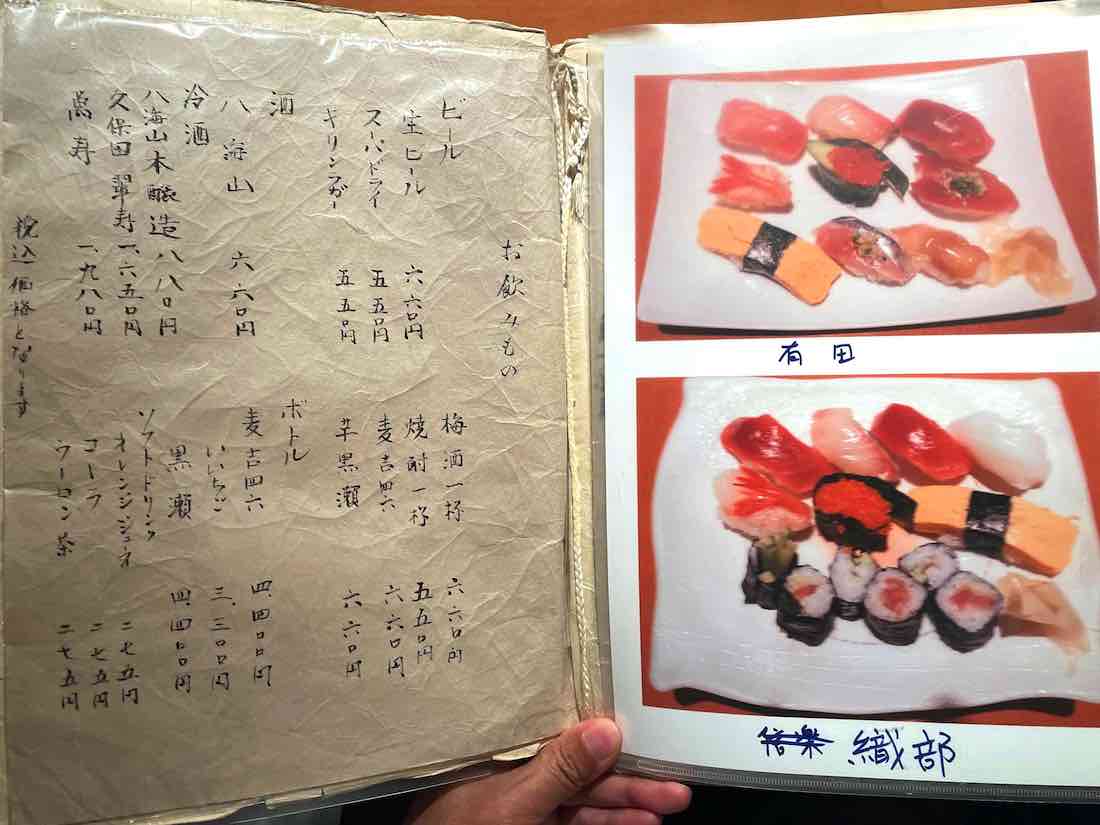 お飲みもの
ビール
生ビール 六六〇円
スーパドライ 五五〇円
キリンラガー 五五〇円
酒
八海山 六六〇円
冷酒
八海山本醸造 八八〇円
久保田 翠寿 一、六五〇円
萬寿 一、九八〇円
梅酒一杯 六六〇円
焼酎一杯 五五〇円
麦吉四六 六六〇円
芋黒瀬 六六〇円
ボトル
麦吉四六 四、四〇〇円
いいちこ 三、三〇〇円
黒瀬 四、四〇〇円
ソフトドリンク
オレンジジュース 二七五円
コーラ 二七五円
ウーロン茶 二七五円
税込価格となります
有田
織部